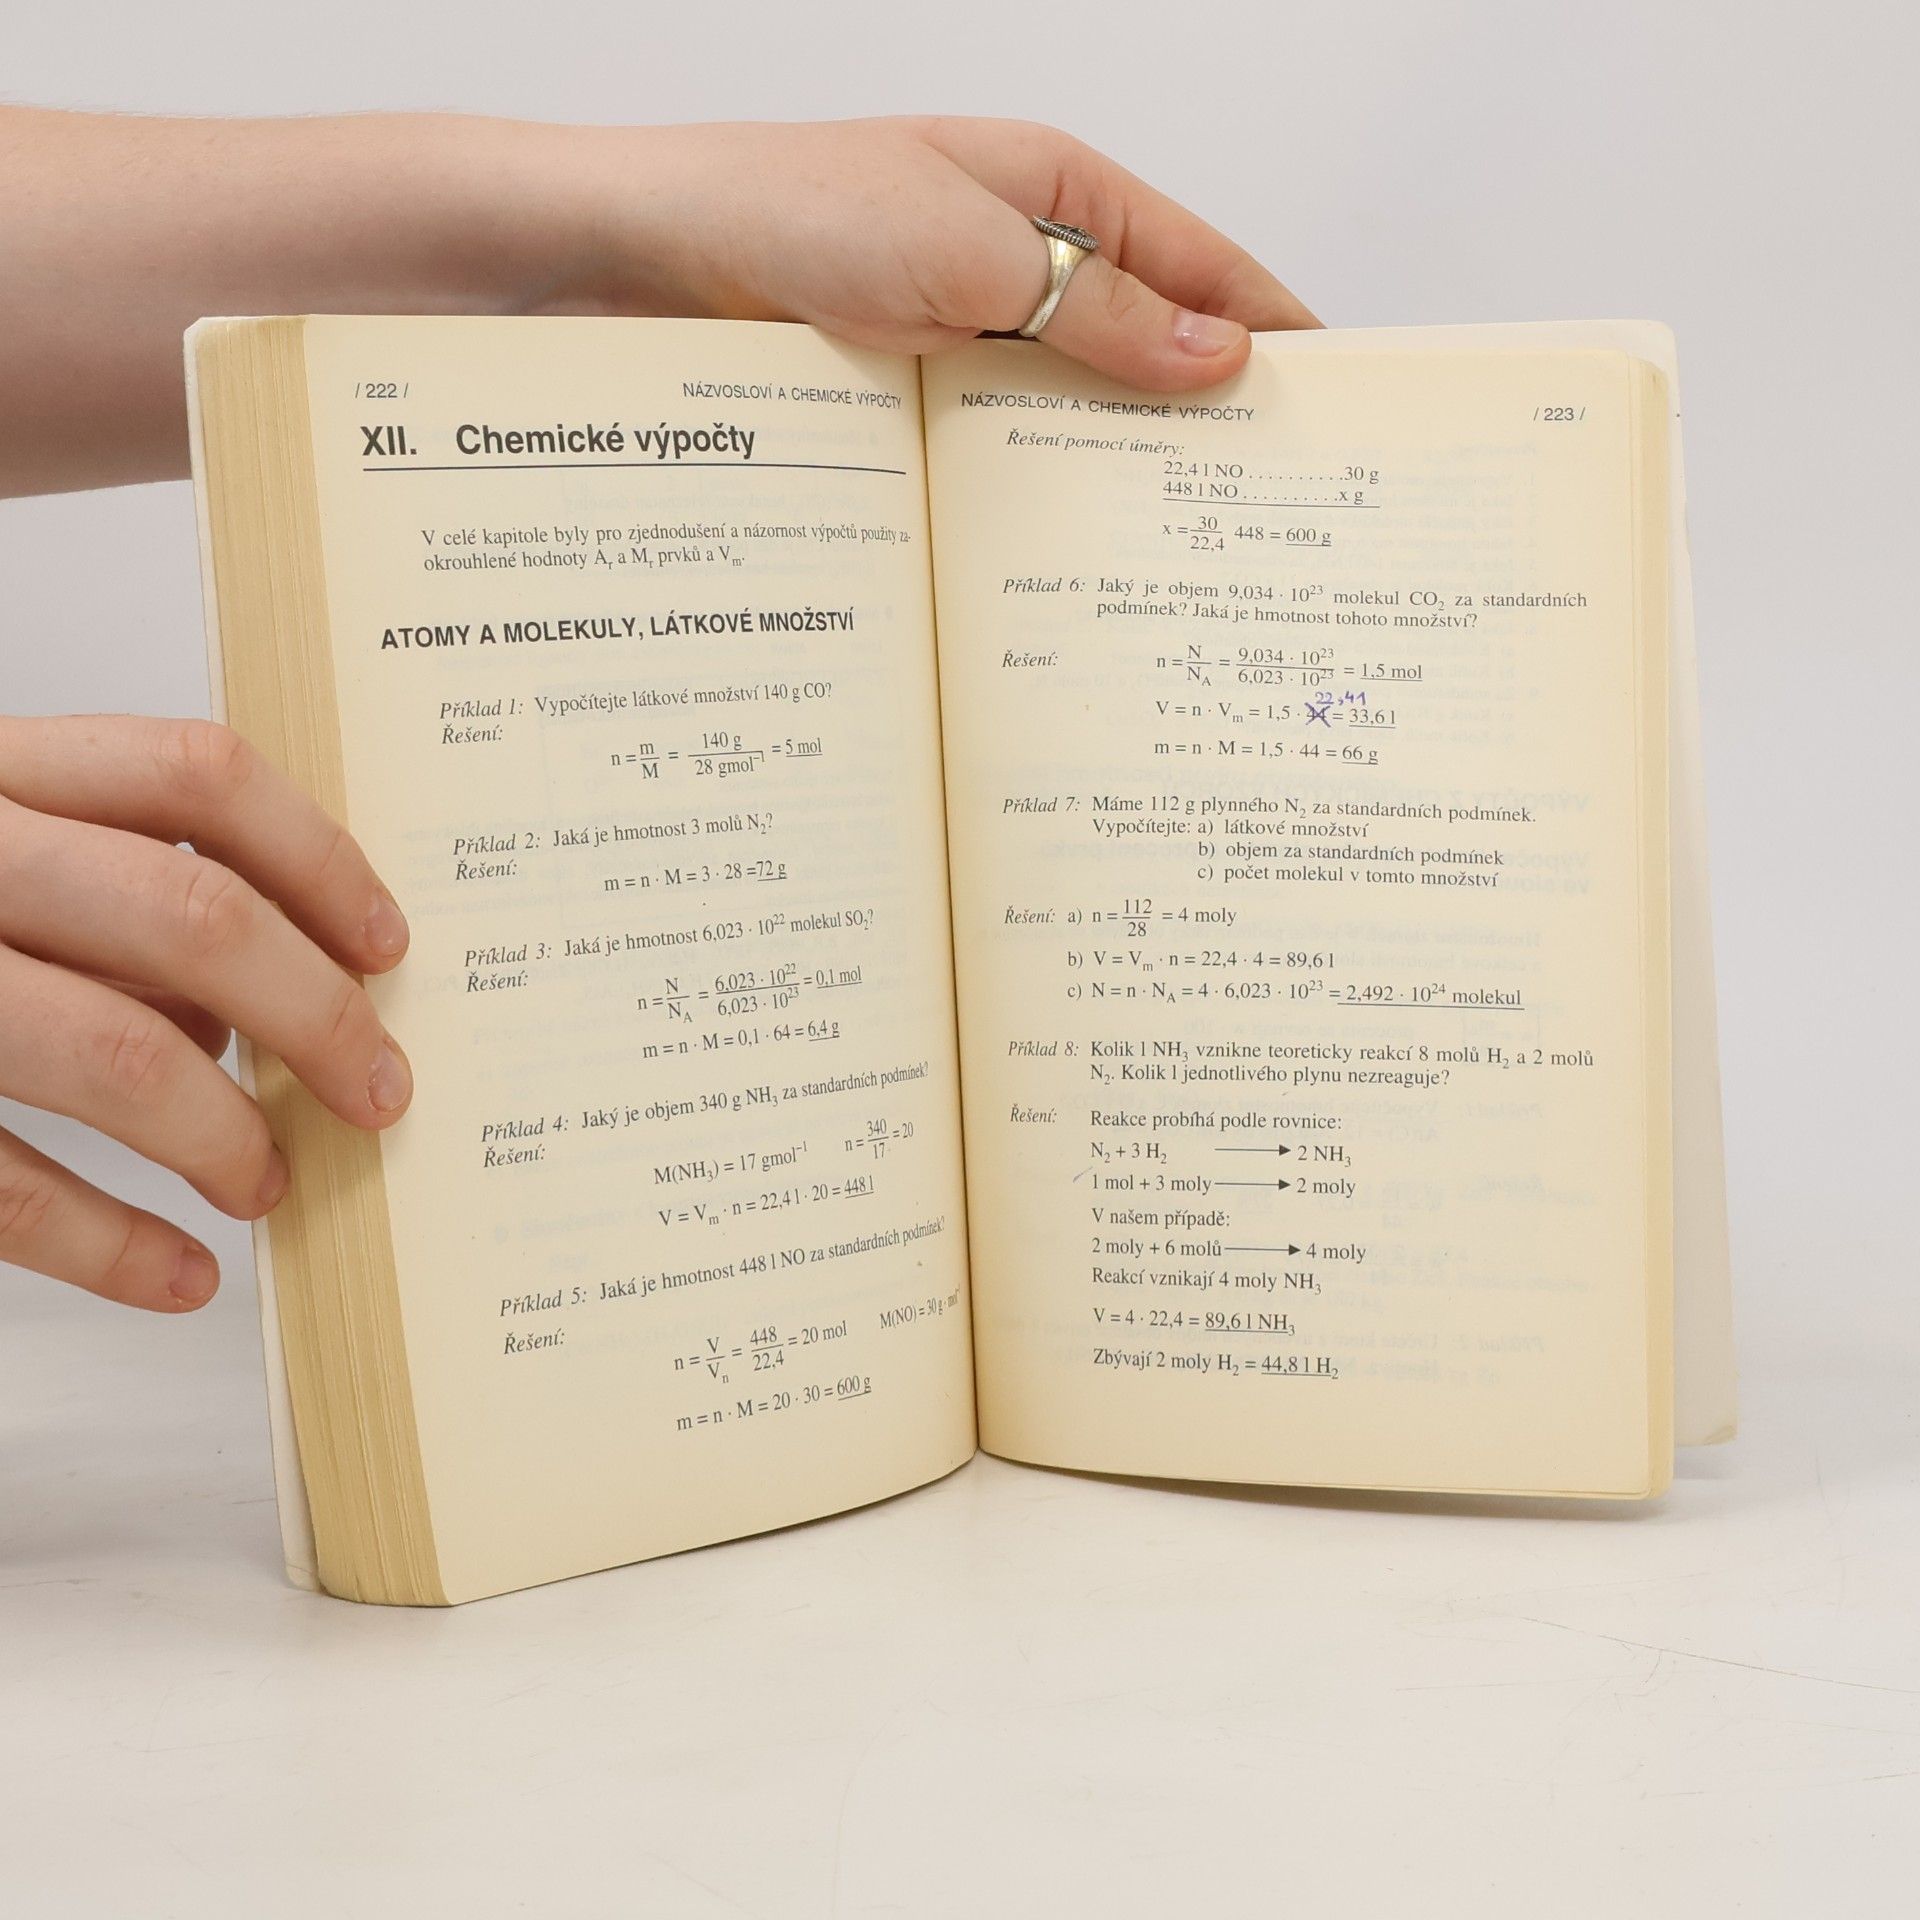 / 222 /
NÁZVOSLOVÍ A CHEMICKÉ VÝPOČTY
XII. Chemické výpočty
V celé kapitole byly pro zjednodušení a názornost výpočtů použity za-
okrouhlené hodnoty Aᵣ a Mᵣ prvků a Vₘ.
ATOMY A MOLEKULY, LÁTKOVÉ MNOŽSTVÍ
Příklad 1: Vypočítejte látkové množství 140 g CO?
Řešení:
n = m/M = 140 g / 28 gmol⁻¹ = 5 mol
Příklad 2: Jaká je hmotnost 3 molů N₂?
Řešení:
m = n · M = 3 · 28 = 72 g
Příklad 3: Jaká je hmotnost 6,023 · 10²² molekul SO₂?
Řešení:
n = N/N_A = 6,023 · 10²² / 6,023 · 10²³ = 0,1 mol
m = n · M = 0,1 · 64 = 6,4 g
Příklad 4: Jaký je objem 340 g NH₃ za standardních podmínek?
Řešení:
M(NH₃) = 17 gmol⁻¹ n = 340/17 = 20
V = Vₘ · n = 22,4 l · 20 = 448 l
Příklad 5: Jaká je hmotnost 448 l NO za standardních podmínek?
Řešení:
n = V/Vₙ = 448/22,4 = 20 mol M(NO) = 30 g · mol⁻¹
m = n · M = 20 · 30 = 600 g
NÁZVOSLOVÍ A CHEMICKÉ VÝPOČTY
/ 223 /
Řešení pomocí úměry:
22,4 l NO . . . . . . . . . .30 g
448 l NO . . . . . . . . . .x g
x = 30/22,4 448 = 600 g
Příklad 6: Jaký je objem 9,034 · 10²³ molekul CO₂ za standardních
podmínek? Jaká je hmotnost tohoto množství?
Řešení:
n = N/N_A = 9,034 · 10²³ / 6,023 · 10²³ = 1,5 mol
22,41
V = n · Vₘ = 1,5 · 44 = 33,6 l
m = n · M = 1,5 · 44 = 66 g
Příklad 7: Máme 112 g plynného N₂ za standardních podmínek.
Vypočítejte: a) látkové množství
b) objem za standardních podmínek
c) počet molekul v tomto množství
Řešení: a) n = 112/28 = 4 moly
b) V = Vₘ · n = 22,4 · 4 = 89,6 l
c) N = n · N_A = 4 · 6,023 · 10²³ = 2,492 · 10²⁴ molekul
Příklad 8: Kolik l NH₃ vznikne teoreticky reakcí 8 molů H₂ a 2 molů
N₂. Kolik l jednotlivého plynu nezreaguje?
Řešení: Reakce probíhá podle rovnice:
N₂ + 3 H₂ ⟶ 2 NH₃
1 mol + 3 moly ⟶ 2 moly
V našem případě:
2 moly + 6 molů ⟶ 4 moly
Reakcí vznikají 4 moly NH₃
V = 4 · 22,4 = 89,6 l NH₃
Zbývají 2 moly H₂ = 44,8 l H₂